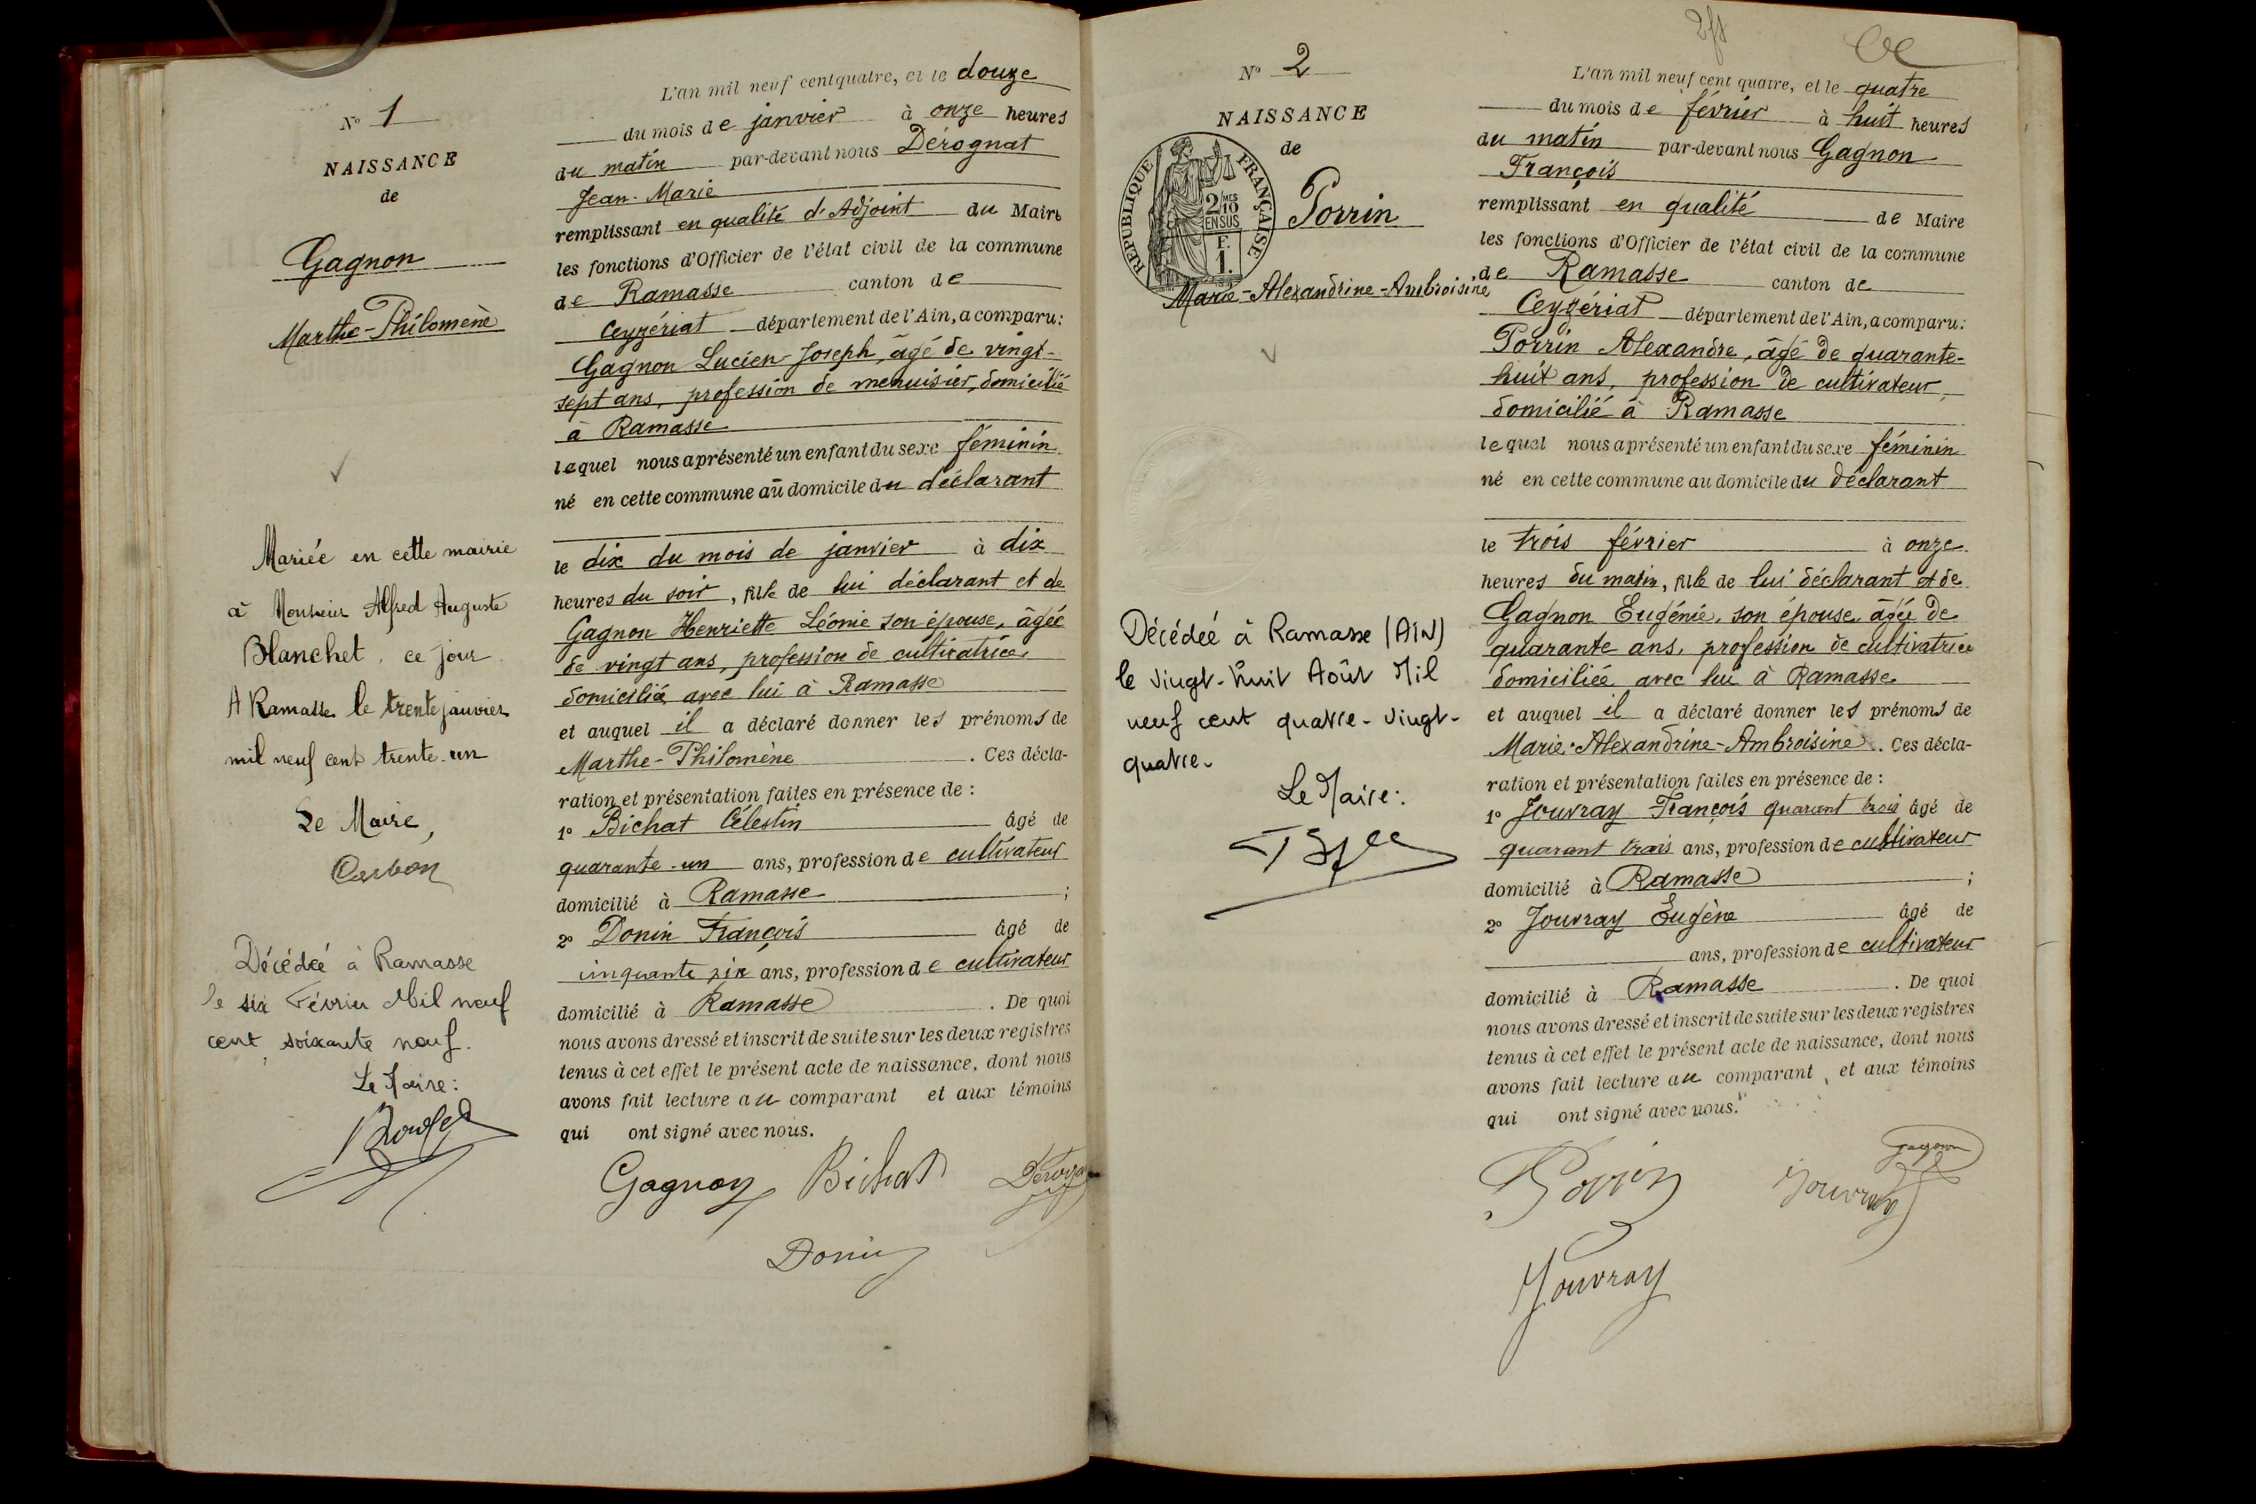 N° 1
NAISSANCE
de
Gagnon
Marthe-Philomène
Mariée en cette mairie
à Monsieur Alfred Auguste
Blanchet. ce jour
A Ramasse le trente janvier
mil neuf cent trente-un
Le Maire,
Décédée à Ramasse
le six Février Mil neuf
cent soixante neuf.
Le Maire:
L'an mil neuf cent quatre, et le douze
du mois de janvier à onze heures
du matin par-devant nous Dérognat
Jean-Marie
remplissant en qualité d'Adjoint du Maire
les fonctions d'Officier de l'état civil de la commune
de Ramasse canton de
Ceyzériat département de l'Ain, a comparu:
Gagnon Lucien-Joseph, âgé de vingt-
sept ans, profession de menuisier, domicilié
à Ramasse
lequel nous a présenté un enfant du sexe féminin
né en cette commune au domicile du déclarant
le dix du mois de janvier à dix
heures du soir, fille de lui déclarant et de
Gagnon Henriette Léonie son épouse, âgée
de vingt ans, profession de cultivatrice,
domiciliée avec lui à Ramasse
et auquel il a déclaré donner les prénoms de
Marthe-Philomène. Ces décla-
ration et présentation faites en présence de :
1° Bichat Célestin âgé de
quarante-un ans, profession de cultivateur
domicilié à Ramasse ;
2° Donin François âgé de
cinquante six ans, profession de cultivateur
domicilié à Ramasse. De quoi
nous avons dressé et inscrit de suite sur les deux registres
tenus à cet effet le présent acte de naissance, dont nous
avons fait lecture au comparant et aux témoins
qui ont signé avec nous.
Gagnon Bichat
Donin
N° 2
NAISSANCE
de
RÉPUBLIQUE FRANÇAISE
2/10 MES
EN SUS
F.
1.
Porrin
Marie-Alexandrine-Ambroisine
Décédée à Ramasse (AIN)
le vingt-huit Août Mil
neuf cent quatre-vingt-
quatre.
Le Maire:
L'an mil neuf cent quatre, et le quatre
du mois de février à huit heures
du matin par-devant nous Gagnon
François
remplissant en qualité de Maire
les fonctions d'Officier de l'état civil de la commune
de Ramasse canton de
Ceyzériat département de l'Ain, a comparu:
Porrin Alexandre, âgé de quarante-
huit ans, profession de cultivateur,
domicilié à Ramasse
lequel nous a présenté un enfant du sexe féminin
né en cette commune au domicile du déclarant
le trois février à onze
heures du matin, fille de lui déclarant et de
Gagnon Eugénie, son épouse, âgée de
quarante ans, profession de cultivatrice
domiciliée avec lui à Ramasse
et auquel il a déclaré donner les prénoms de
Marie-Alexandrine-Ambroisine. Ces décla-
ration et présentation faites en présence de :
1° Jouvray François quarant trois âgé de
quarant trois ans, profession de cultivateur
domicilié à Ramasse ;
2° Jouvray Eugène âgé de
ans, profession de cultivateur
domicilié à Ramasse. De quoi
nous avons dressé et inscrit de suite sur les deux registres
tenus à cet effet le présent acte de naissance, dont nous
avons fait lecture au comparant, et aux témoins
qui ont signé avec nous.
Porrin Jouvray Gagnon
Jouvray